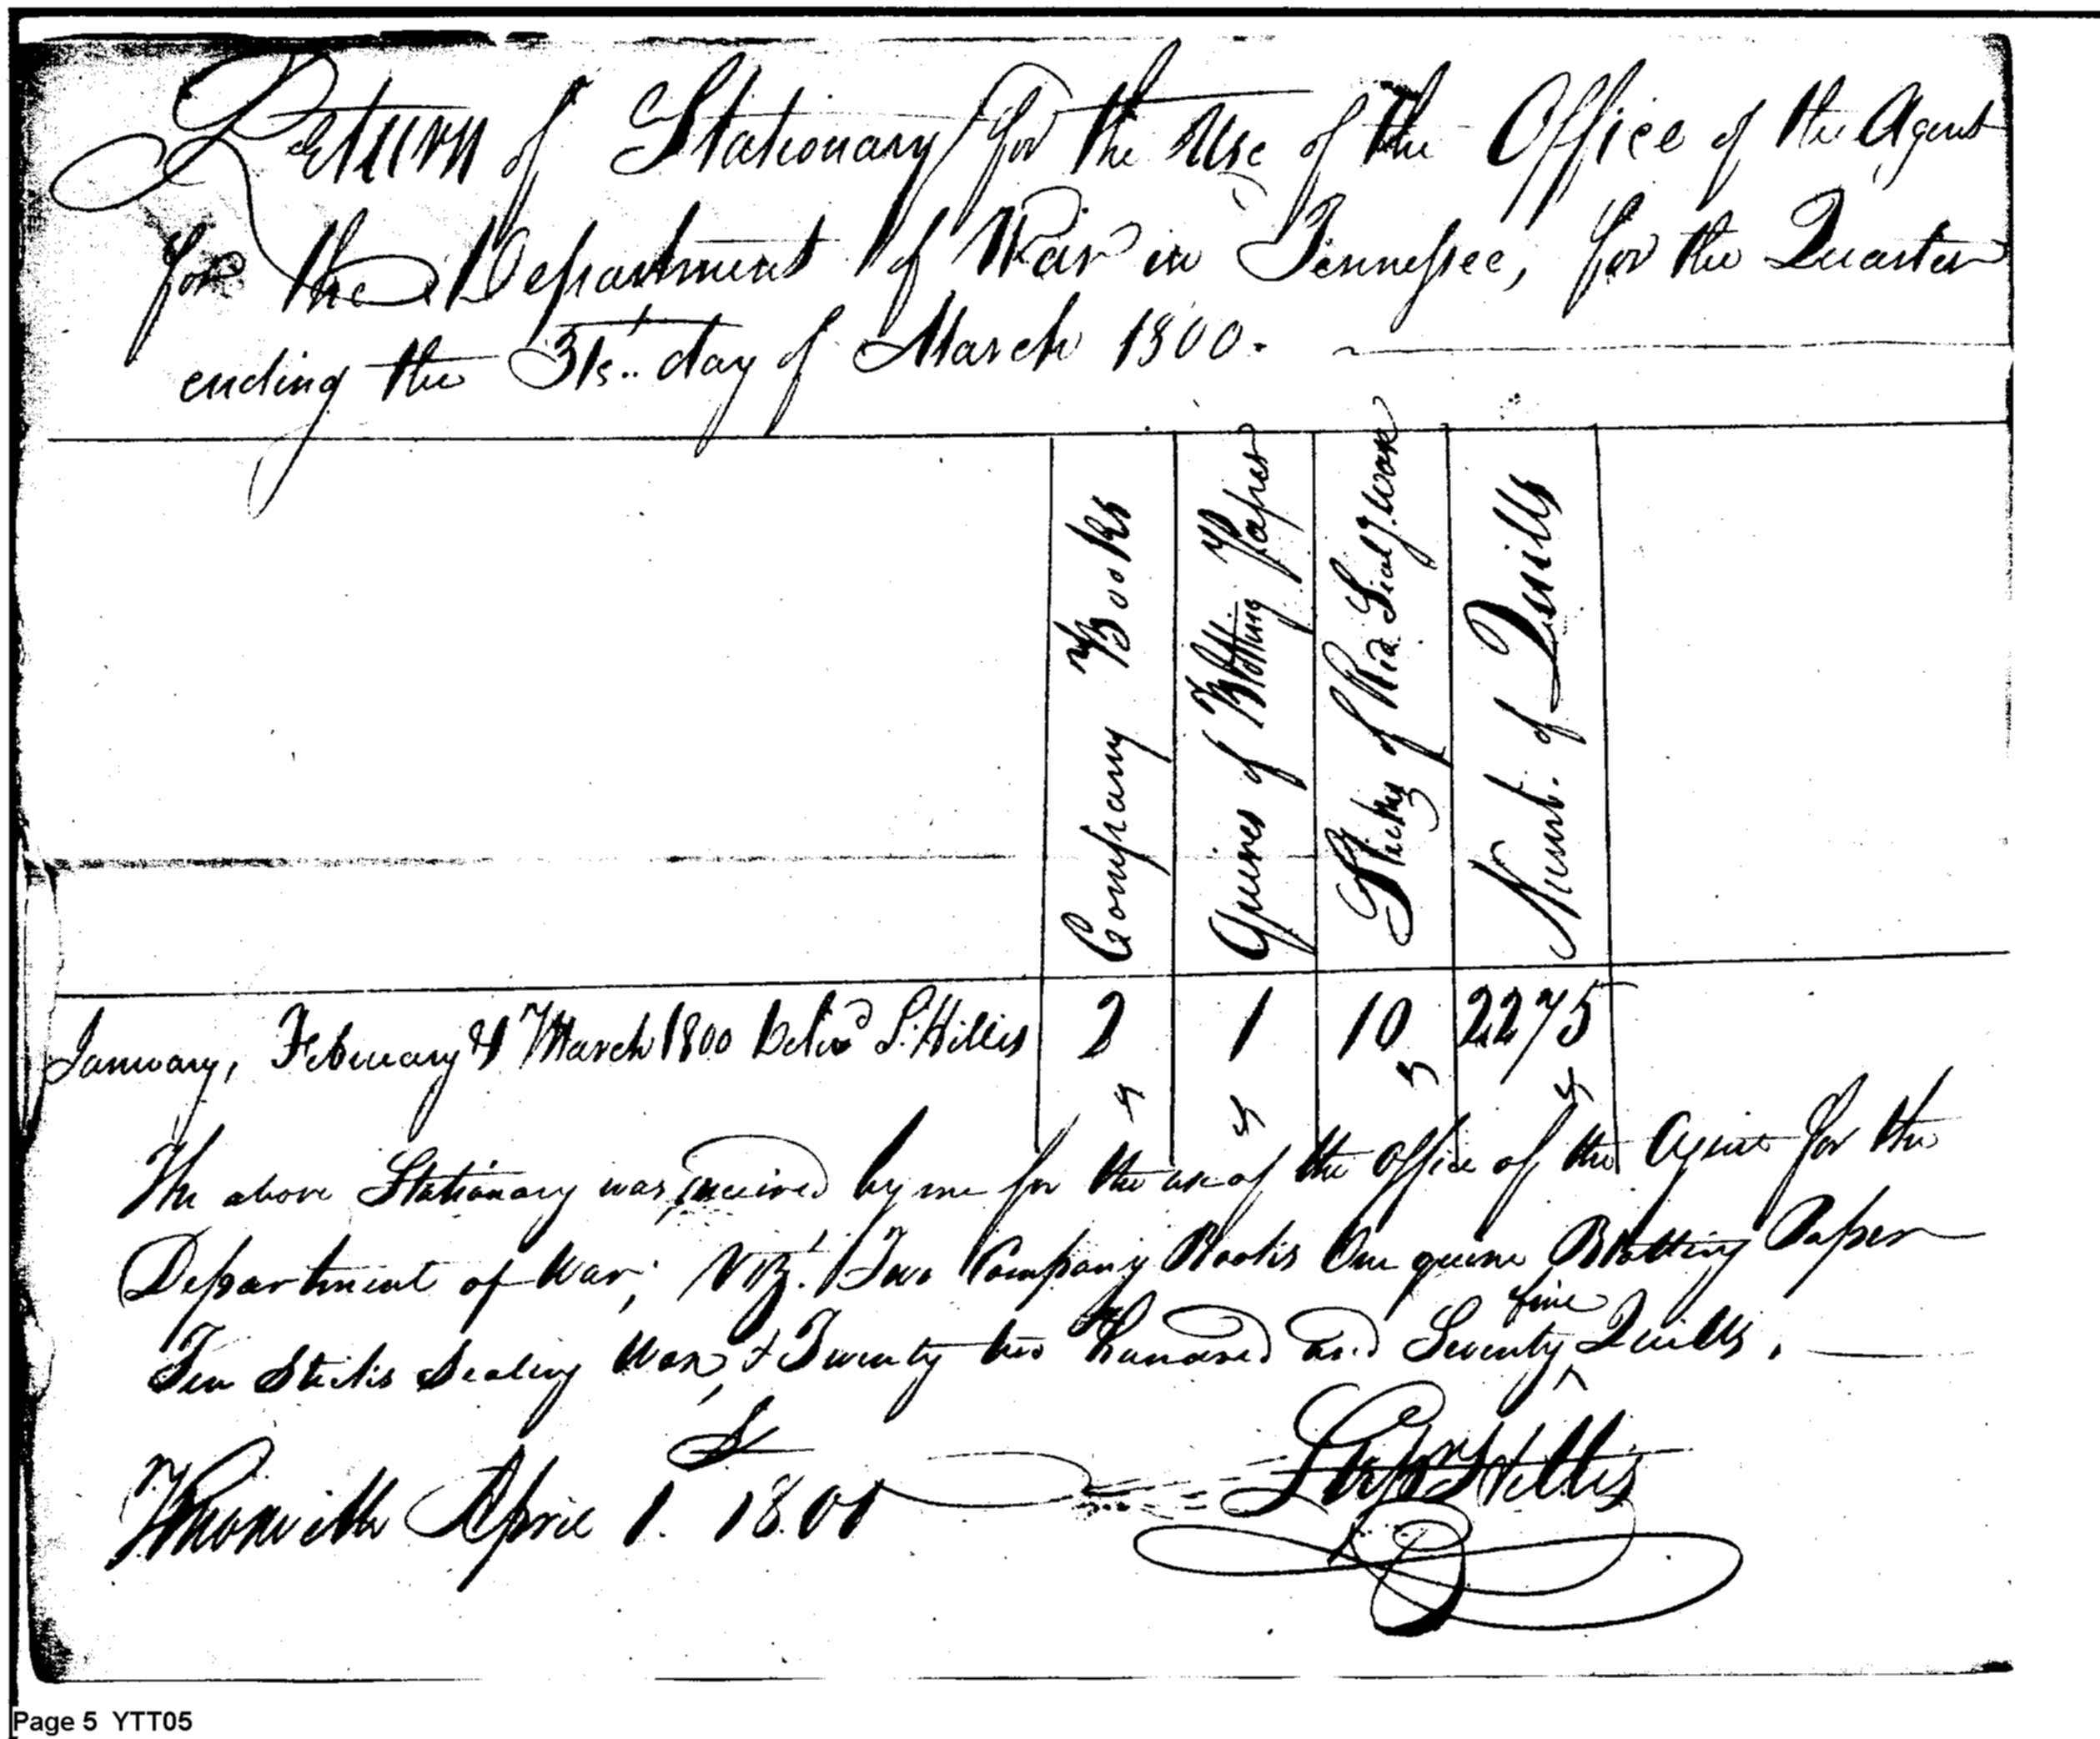 Return of Stationary for the Use of the Office of the Agent
for the Department of War in Tennessee, for the Quarter
ending the 31st. day of March 1800.
Company Books
Quires of Blotting Paper
Sticks of Red Sealg. wax
Numb. of Quills
January, February & March 1800 Delivd S. Hillis 2 1 10 2275
The above Stationary was received by me for the use of the Office of the Agent for the
Department of War; Viz. Two Company Books One quire Blotting Paper
Ten Sticks Sealing Wax, & Twenty two hundred and Seventy five Quills.
Knoxville April 1. 1801
Hillis
Page 5 YTT05